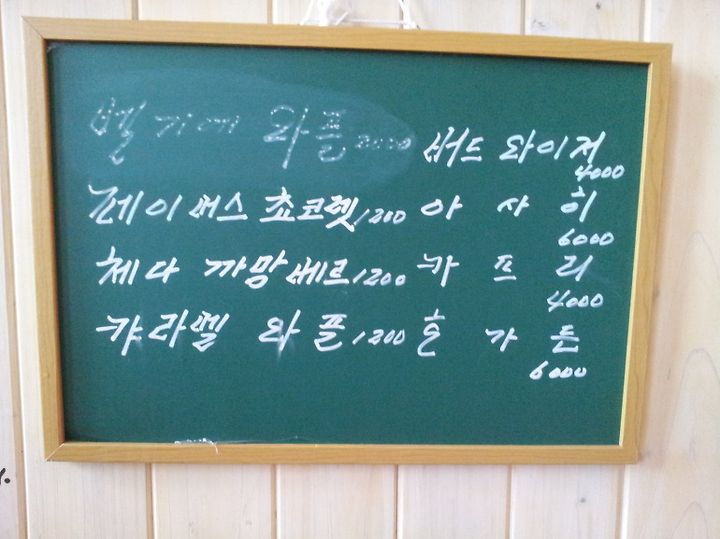 벨기에 와플 2000 버드 와이저 4000
레이버스 쵸코렛 1200 아 사 히 6000
체다 까망베르 1200 카 프 리 4000
캬라멜 와플 1200 호 가 든 6000